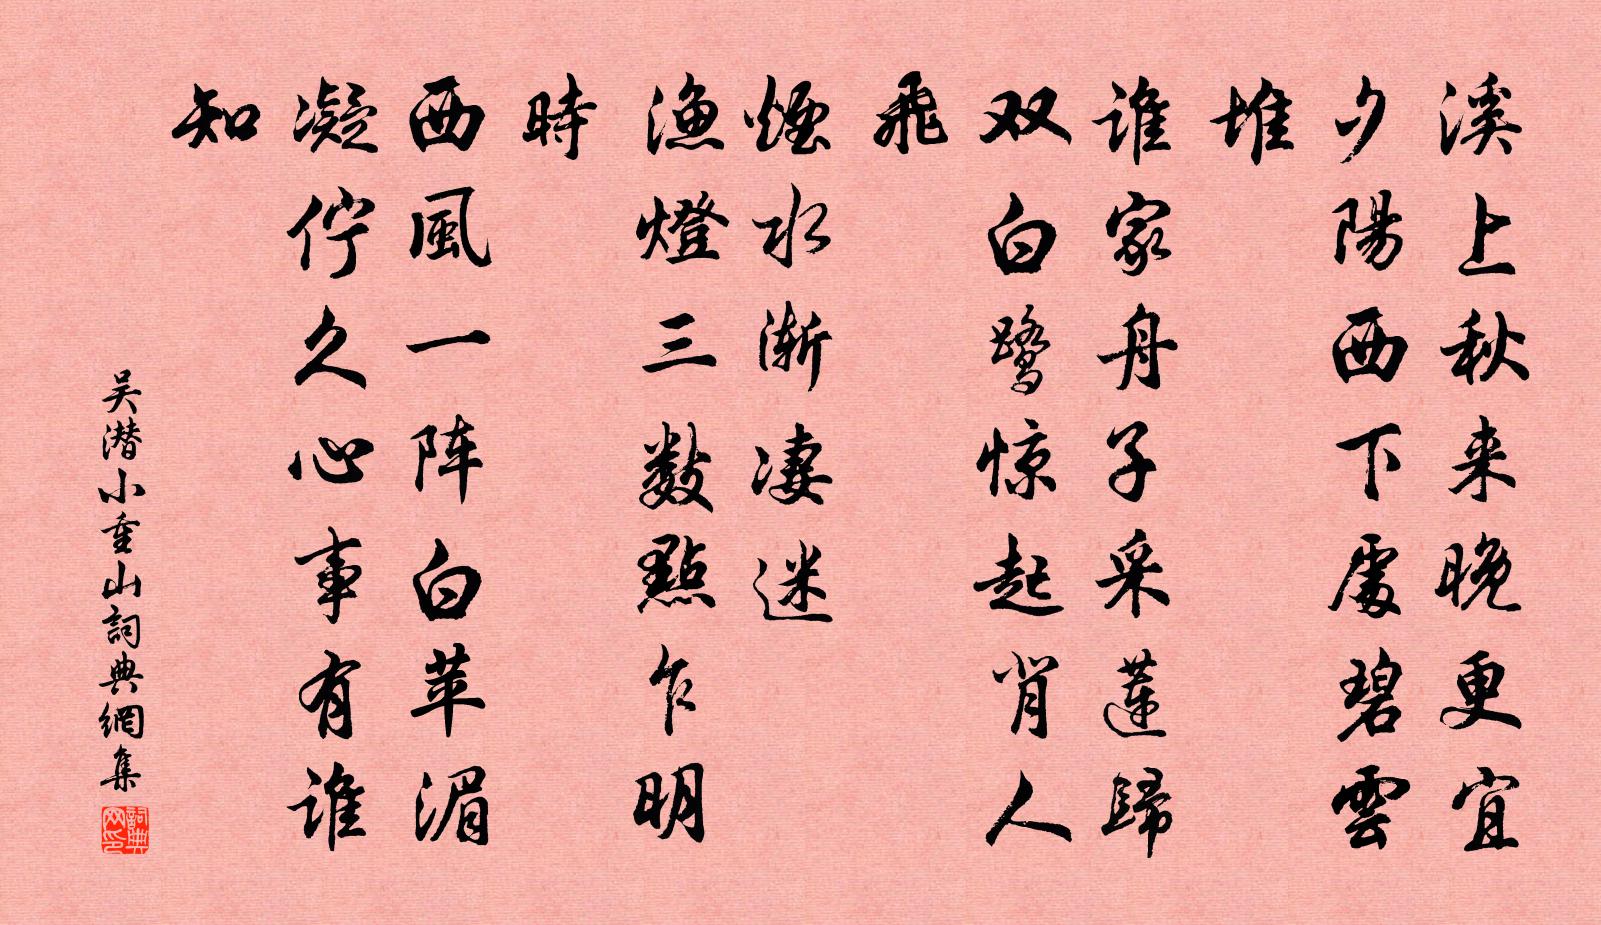 溪上秋来晚更宜
夕陽西下處碧雲
堆
谁家舟子采蓮歸
双白鹭惊起背人
飛
煙水渐凄迷
漁燈三數點乍明
時
西風一阵白苹湄
凝伫久心事有谁
知
吴潜小重山詞典網集
詞典网印